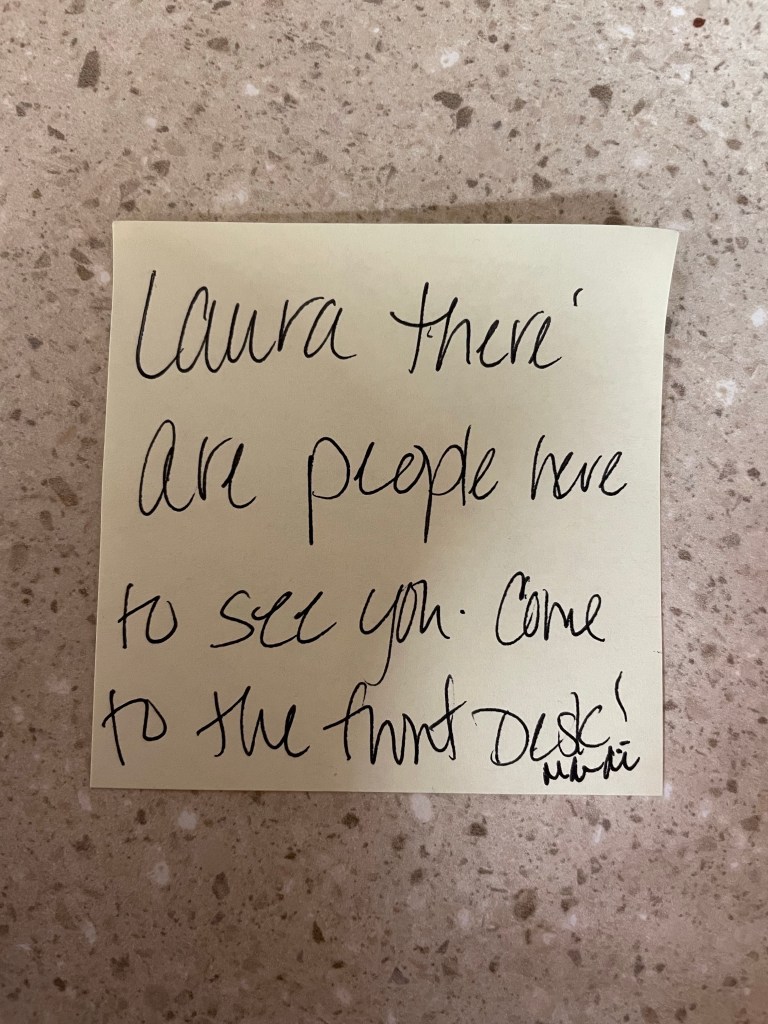 Laura there
are people here
to see you. Come
to the front Desk!